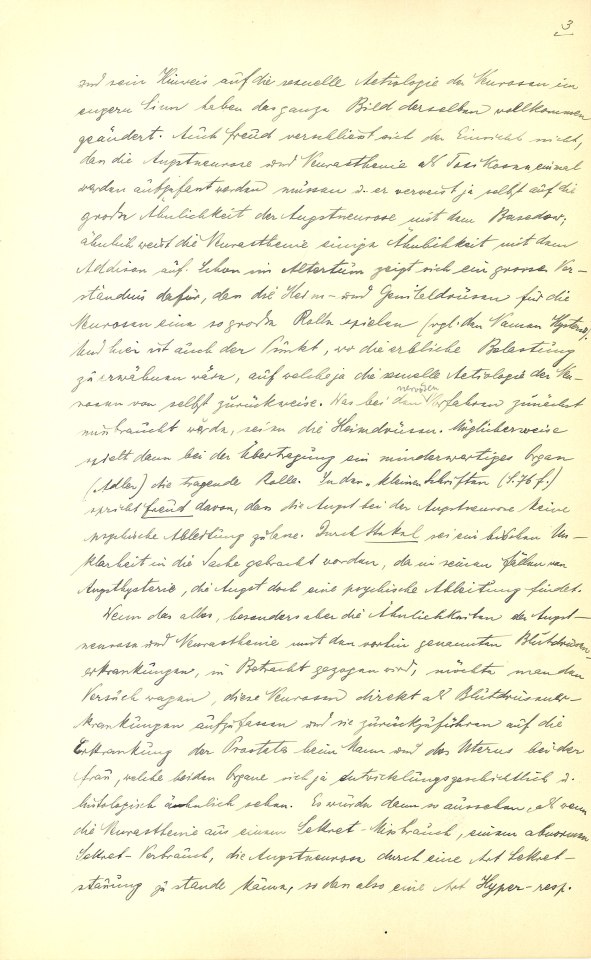 3
und sein Hinweis auf die sexuelle Aetiologie der Neurosen im
engern Sinn haben das ganze Bild derselben vollkommen
geändert. Auch Freud verschliesst sich der Einsicht nicht,
dass die Angstneurose und Neurasthenie als Toxikosen einmal
werden aufgefasst werden müssen u. er verweist ja selbst auf die
große Ähnlichkeit der Angstneurose mit dem Basedow;
ähnlich weist die Neurasthenie einige Ähnlichkeit mit dem
Addison auf. Schon im Altertum zeigt sich ein grosses Ver-
ständnis dafür, dass die Keim- und Genitaldrüsen für die
Neurosen eine so große Rolle spielen (vgl. den Namen Hysterie).
Und hier ist auch der Punkt, wo die erbliche Belastung
zu erwähnen wäre, auf welche ja die sexuelle Aetiologie der Neu-
rosen von selbst zurückweise. Was bei den nervösen Vorfahren zunächst
missbraucht würde, seien die Keimdrüsen. Möglicherweise
spielt dann bei der Übertragung ein minderwertiges Organ
(Adler) die tragende Rolle. In den „kleinen Schriften (S. 76 f.)
spricht Freud davon, dass die Angst bei der Angstneurose keine
psychische Ableitung zulasse. Durch Stekel sei ein bischen Un-
klarheit in die Sache gebracht worden, da in seinen Fällen von
Angsthysterie, die Angst doch eine psychische Ableitung findet.
Wenn das alles, besonders aber die Ähnlichkeiten der Angst-
neurose und Neurasthenie mit den vorhin genannten Blutdrüsen-
erkrankungen, in Betracht gezogen wird, möchte man den
Versuch wagen, diese Neurosen direkt als Blutdrüsener-
krankungen aufzufassen und sie zurückzuführen auf die
Erkrankung der Prostata beim Mann und des Uterus bei der
Frau, welche beiden Organe sich ja entwicklungsgeschichtlich u.
histologisch ähnlich sehen. Es würde dann so aussehen, als wenn
die Neurasthenie aus einem Sekret-Missbrauch, einem abnormen
Sekret-Verbrauch, die Angstneurose durch eine Art Sekret-
stauung zu stande käme, so dass also eine Art Hyper- resp.